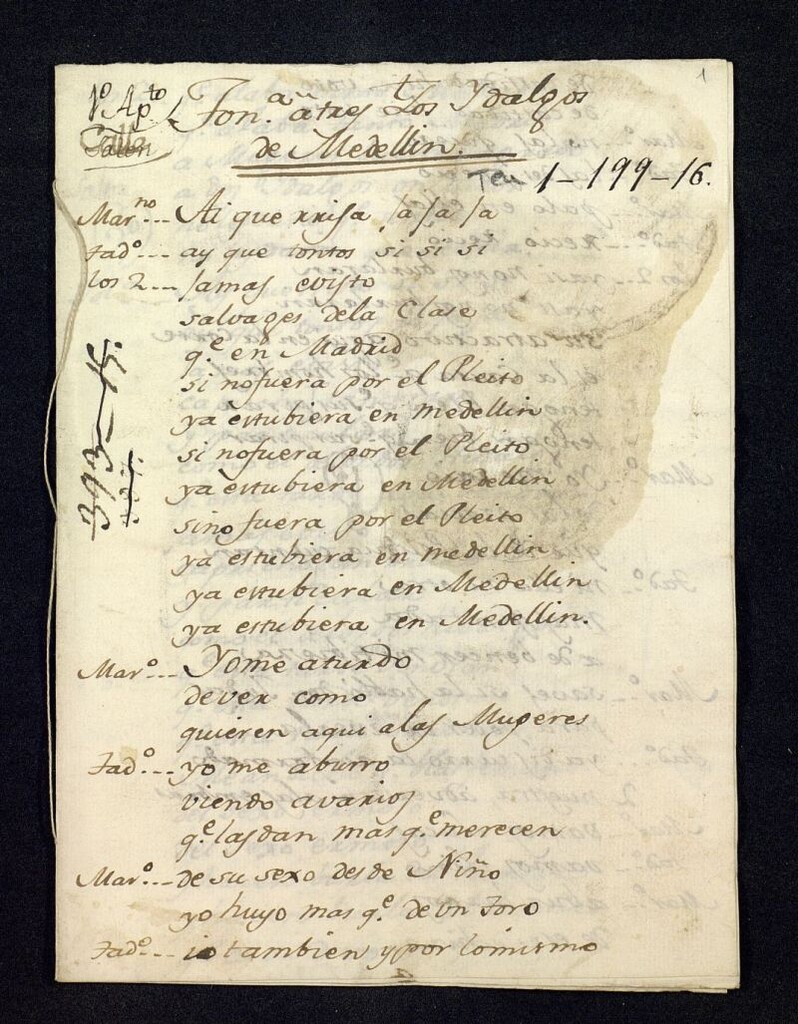 1
1º Apto
Ton.ª â tres Los Ydalgos
de Medellin.
Tea 1-199-16.
Marno... Ai que rrisa ja ja ja
Tadº... ay que tontos si si si
los 2... jamas evisto
salvages dela Clase
q.e en Madrid
si nofuera por el Pleito
ya estubiera en medellin
si nofuera por el Pleito
ya estubiera en Medellin
sino fuera por el Pleito
ya estubiera en medellin
ya estubiera en Medellin
ya estubiera en Medellin.
Marº... Yome aturdo
dever como
quieren aqui alas Mugeres
Tadº... yo me aburro
viendo avarios
q.e lasdan mas q.e merecen
Marº... de su sexo desde Niño
yo huyo mas q.e de vn Toro
Tadº... io tambien y por lomismo
393-15.